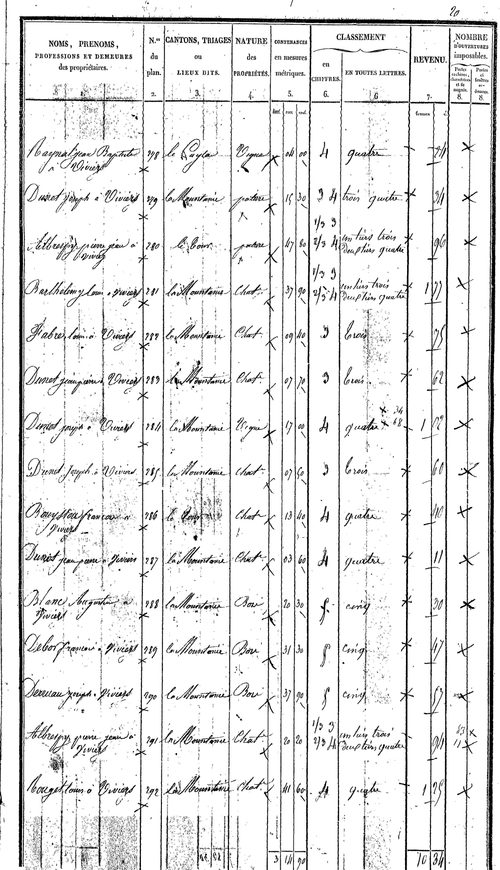 20
NOMS, PRENOMS,
PROFESSIONS ET DEMEURES
des propriétaires.
N.os
du
plan.
CANTONS, TRIAGES
ou
LIEUX DITS.
NATURE
des
PROPRIÉTÉS.
CONTENANCES
en mesures
métriques.
CLASSEMENT
en
CHIFFRES.
EN TOUTES LETTRES.
REVENU.
NOMBRE
D'OUVERTURES
imposables.
2. 3. 4. 5. 6. 6 7. 8. 8.
278 04 00 4 quatre 24
Viviers
Dunet joseph à Viviers 279 la Mountanie pature 15 30 3 4 trois quatre 34
1/3 3
Albrespy pierre jean à 280 pature 47 80 2/3 4 un tiers trois 96
Viviers deux tiers quatre
1/3 3
Barthelemy louis à Viviers 281 la Mountanie Chat. 37 90 2/3 4 un tiers trois 1 77
deux tiers quatre
Fabre louis à Viviers 282 la Mountanie Chat. 09 40 3 trois 75
Dunet jean pierre à Viviers 283 la Mountanie Chat. 07 70 3 trois 62
34
Dunet joseph à Viviers 284 la Mountanie Vigne 17 00 4 quatre 68 1 02
Dunet joseph à Viviers 285 la Mountanie Chat. 07 50 3 trois 60
françois à 286 Chat. 13 40 4 quatre 40
Viviers
Dunet jean pierre à Viviers 287 la Mountanie Chat. 03 60 4 quatre 11
Blanc Augustin à 288 la Mountanie Bois 20 30 5 cinq 30
Viviers
Debos françois à Viviers 289 la Mountanie Bois 31 30 5 cinq 47
joseph à Viviers 290 la Mountanie Bois 37 90 5 cinq 57
1/3 3
Albrespy pierre jean à 291 la Mountanie Chat. 20 20 2/3 4 un tiers trois 94
Viviers deux tiers quatre
Rouget louis à Viviers 292 la Mountanie Chat. 41 60 4 quatre 1 25
3 14 90 10 34